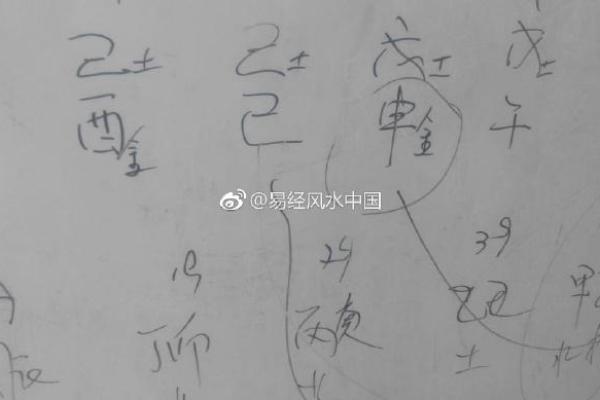 己土 己土 戊土 戊土
酉金 巳 申金 午
@易经风水中国
19 29 39
丁卯 丙寅 乙丑 甲
土